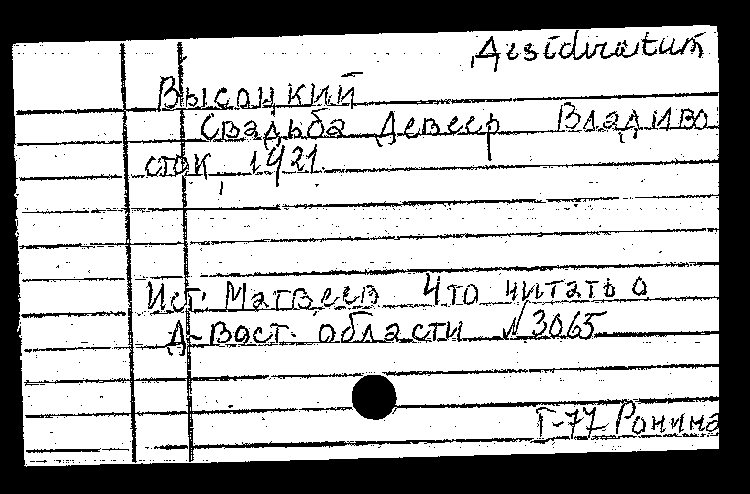 Desideratum
Высоцкий
Свадьба Девеер Владиво
сток, 1921.
Ист. Матвеев Что читать о
Д-Вост. области №3065
I-77 Ронина